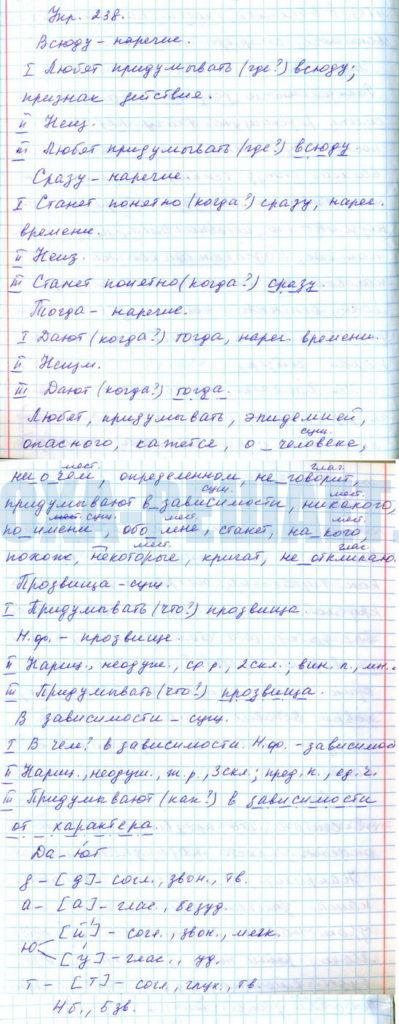 Упр. 238.
Всюду – наречие.
I Любят придумывать (где?) всюду;
признак действия.
II Неиз.
III Любят придумывать (где?) всюду.
Сразу – наречие.
I Станет понятно (когда?) сразу, нареч.
времени.
II Неиз.
III Станет понятно (когда?) сразу.
Тогда – наречие.
I Дают (когда?) тогда, нареч. времени.
II Неизм.
III Дают (когда?) тогда.
Любят, придумывать, эпидемией,
сущ.
опасного, кажется, о человеке,
мест. глаг.
ни о чём, определенном, не говорит,
сущ. мест.
придумывают в зависимости, никакого,
сущ. мест. мест.
по имени, обо мне, станет, на кого,
мест. глаг.
похож, некоторые, кричат, не откликаю.
Прозвища – сущ.
I Придумывать (что?) прозвища.
Н.ф. – прозвище.
II Нариц., неодуш., ср.р., 2скл.; вин.п., мн.
III Придумывать (что?) прозвища.
В зависимости – сущ.
I В чем? в зависимости. Н.ф. – зависимос
II Нариц., неодуш., ж.р., 3скл.; пред.п., ед.ч.
III Придумывают (как?) в зависимости
от характера.
Да – ют
д – [д] – согл., звон., тв.
а – [а] – глас., безуд.
[й'] – согл., звон., мягк.
ю
[у] – глас., уд.
т – [т] – согл., глух., тв.
4 б., 5 зв.